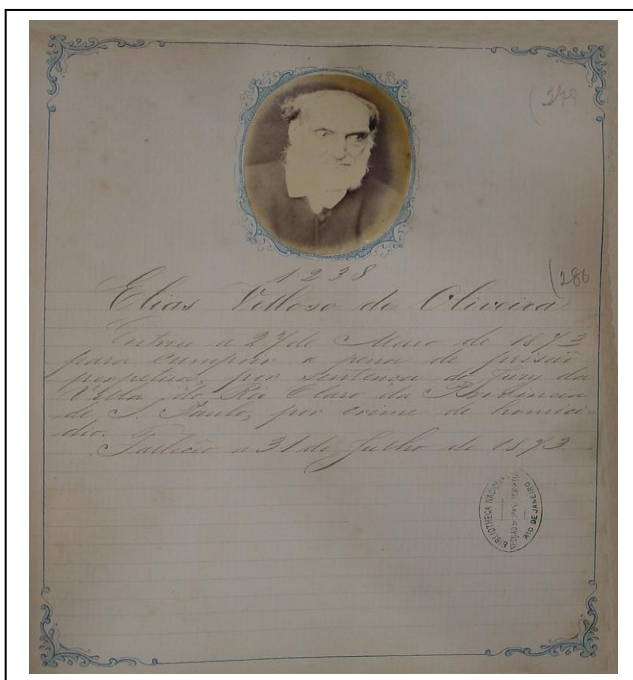 379
1238
(286
Elias Velloso de Oliveira
Entrou a 27 de Maio de 1873
para cumprir a pena de prisão
perpetua, por sentença do Jury da
Villa do Rio Claro da Provincia
de S. Paulo, por crime de homici-
dio.
Falleceo a 31 de Julho de 1873
BIBLIOTHECA NACIONAL
RIO DE JANEIRO